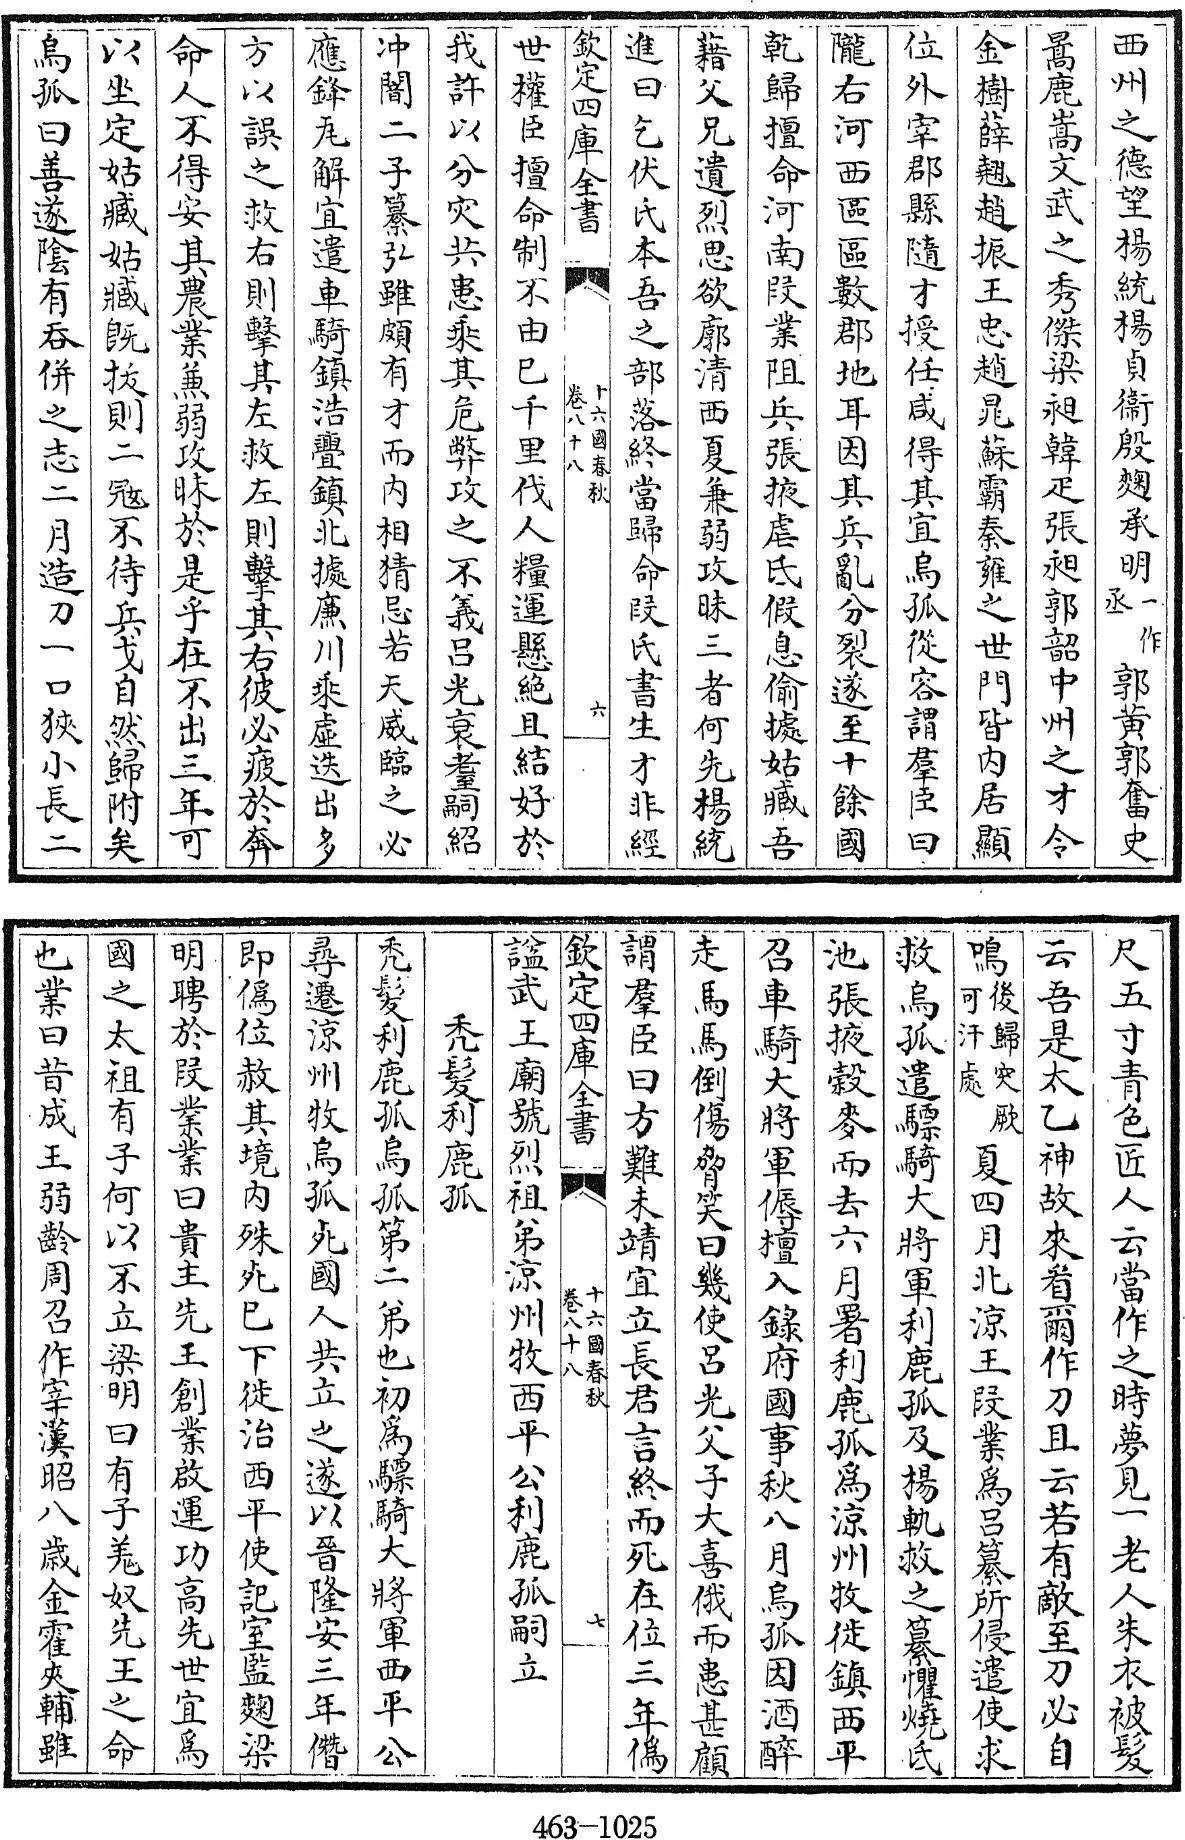 西州之德望楊統楊貞衞殷麴承明一作丞郭黄郭奮史
暠鹿嵩文武之秀傑梁昶韓疋張昶郭韶中州之才令
金樹薛翹趙振王忠趙晁蘇霸秦雍之世門皆内居顯
位外宰郡縣隨才授任咸得其宜烏孤從容謂羣臣曰
隴右河西區區數郡地耳因其兵亂分裂遂至十餘國
乾歸擅命河南段業阻兵張掖虐氐假息偷據姑臧吾
藉父兄遺烈思欲廓清西夏兼弱攻昧三者何先楊統
進曰乞伏氏本吾之部落終當歸命段氏書生才非經
欽定四庫全書
十六國春秋
卷八十八
六
世權臣擅命制不由已千里伐人糧運懸絶且結好於
我許以分灾共患乘其危弊攻之不義吕光衰耄嗣紹
冲闇二子纂弘雖頗有才而内相猜忌若天威臨之必
應鋒瓦解宜遣車騎鎮浩亹鎮北據廉川乘虛迭出多
方以誤之救右則擊其左救左則擊其右彼必疲於奔
命人不得安其農業兼弱攻昧於是乎在不出三年可
以坐定姑臧姑臧既拔則二冦不待兵戈自然歸附矣
烏孤曰善遂陰有吞併之志二月造刀一口狹小長二
尺五寸青色匠人云當作之時夢見一老人朱衣被髪
云吾是太乙神故來看爾作刀且云若有敵至刀必自
鳴後歸突厥可汗處夏四月北涼王段業為吕纂所侵遣使求
救烏孤遣驃騎大將軍利鹿孤及楊軌救之纂懼燒氐
池張掖穀麥而去六月署利鹿孤為涼州牧徙鎮西平
召車騎大將軍傉檀入錄府國事秋八月烏孤因酒醉
走馬馬倒傷脅笑曰幾使吕光父子大喜俄而患甚顧
謂羣臣曰方難未靖宜立長君言終而死在位三年僞
欽定四庫全書
十六國春秋
卷八十八
七
諡武王廟號烈祖弟涼州牧西平公利鹿孤嗣立
秃髪利鹿孤
秃髪利鹿孤烏孤第二弟也初為驃騎大將軍西平公
尋遷涼州牧烏孤死國人共立之遂以晉隆安三年僭
即僞位赦其境内殊死已下徙治西平使記室監麴梁
明聘於段業業曰貴主先王創業啟運功高先世宜為
國之太祖有子何以不立梁明曰有子羌奴先王之命
也業曰昔成王弱齡周召作宰漢昭八歳金霍夾輔雖
463-1025